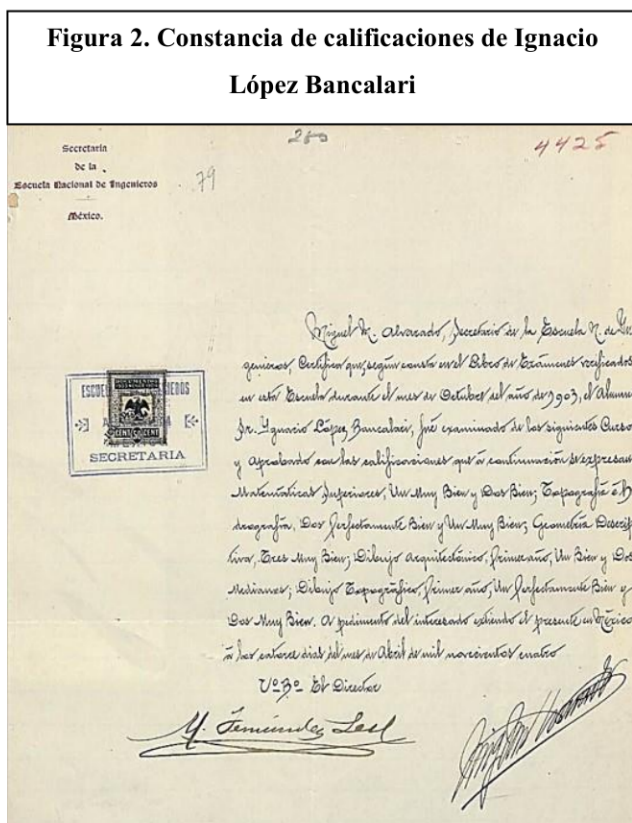 Figura 2. Constancia de calificaciones de Ignacio
López Bancalari
280
4425
Secretaría
de la
Escuela Nacional de Ingenieros
79
México.
Miguel M. Alvarado, Secretario de la Escuela N. de In
genieros, Certifica que, según consta en el Libro de Exámenes verificados
en esta Escuela durante el mes de Octubre del año de 1903, el Alumno
Sr. Ygnacio López Bancalari, fué examinado de los siguientes Curso
y aprobado con las calificaciones que á continuación se expresan
Matemáticas Superiores, Un Muy Bien y Dos Bien; Topografía é H
drografía, Dos Perfectamente Bien y Un Muy Bien; Geometría Descrip
tiva, Tres Muy Bien; Dibujo Arquitectónico, primer año, Un Bien y Dos
Medianos; Dibujo Topográfico, primer año, Un Perfectamente Bien y
Dos Muy Bien. A pedimento del interesado extiendo el presente en México
á los catorce dias del mes de Abril de mil novecientos cuatro
SECRETARIA
Vº Bº El Director
M. Fernández Leal